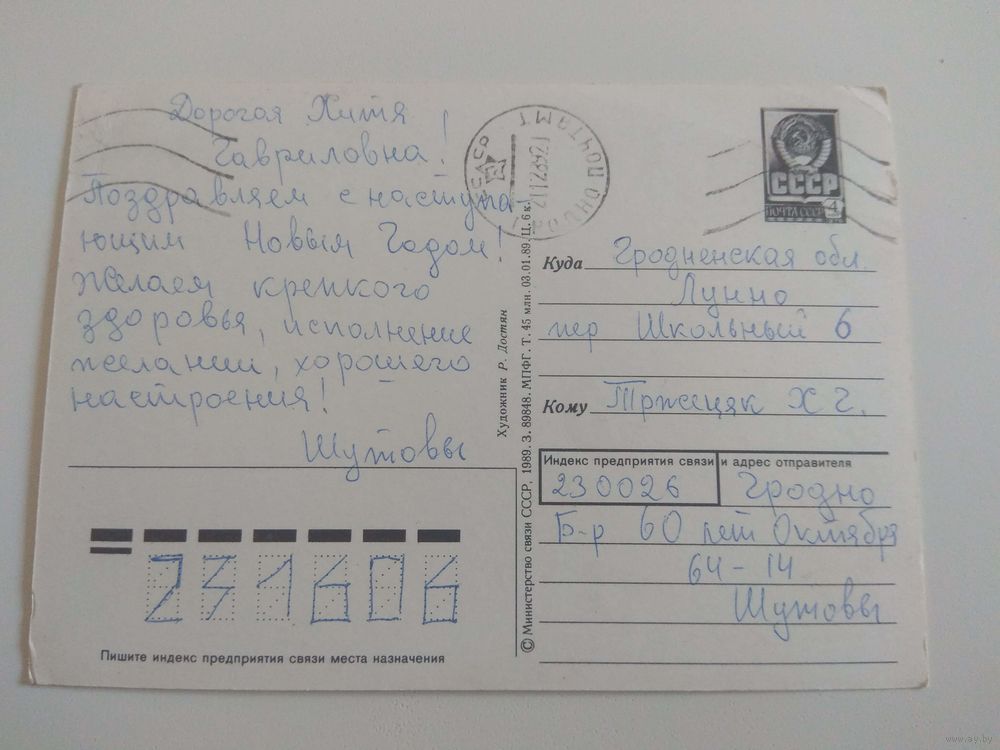 Дорогая Хитя
Гавриловна!
Поздравляем с наступа-
ющим Новым Годом!
Желаем крепкого
здоровья, исполнение
желании, хорошего
настроения!
Шутовы
ПОЧТАМТ
СССР
ПОЧТА СССР 4
Куда Гродненская обл.
Лунно
пер Школьный 6
Кому Тржецяк Х Г.
Индекс предприятия связи и адрес отправителя
230026 Гродно
Б-р 60 лет Октября
64-14
Шутовы
Художник Р. Достян
© Министерство связи СССР, 1989. З. 89848. МПФГ. Т. 45 млн. 03.01.89. Ц. 6 к.
231606
Пишите индекс предприятия связи места назначения
www.ay.by